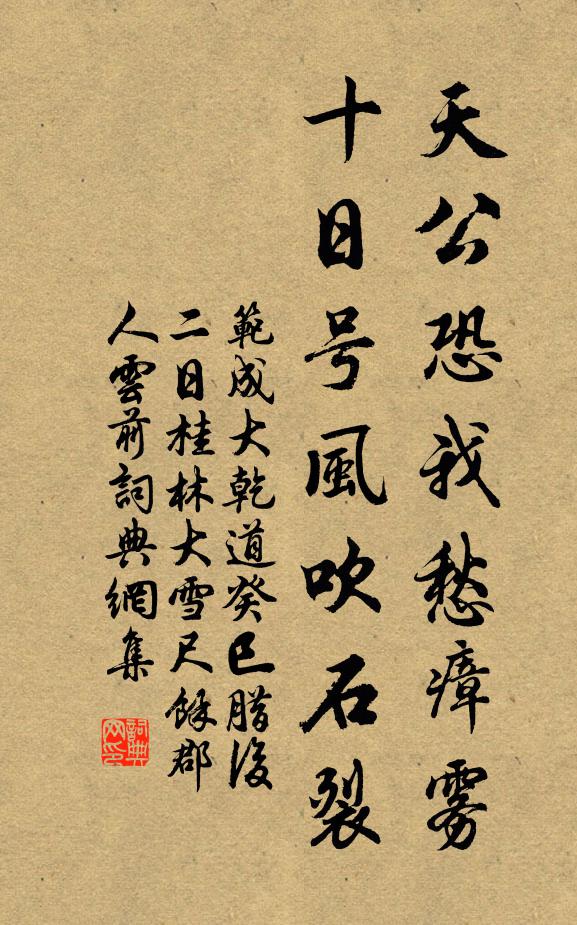 天公恐我愁瘴雾
十日号風吹石裂
範成大乾道癸巳腊後
二日桂林大雪尺餘郡
人雲前詞典網集
詞典网印